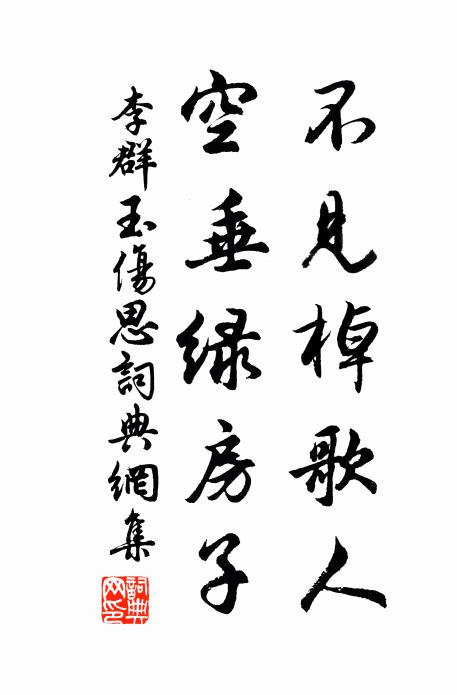 不见棹歌人
空垂绿房子
李群玉傷思詞典網集
詞典網印